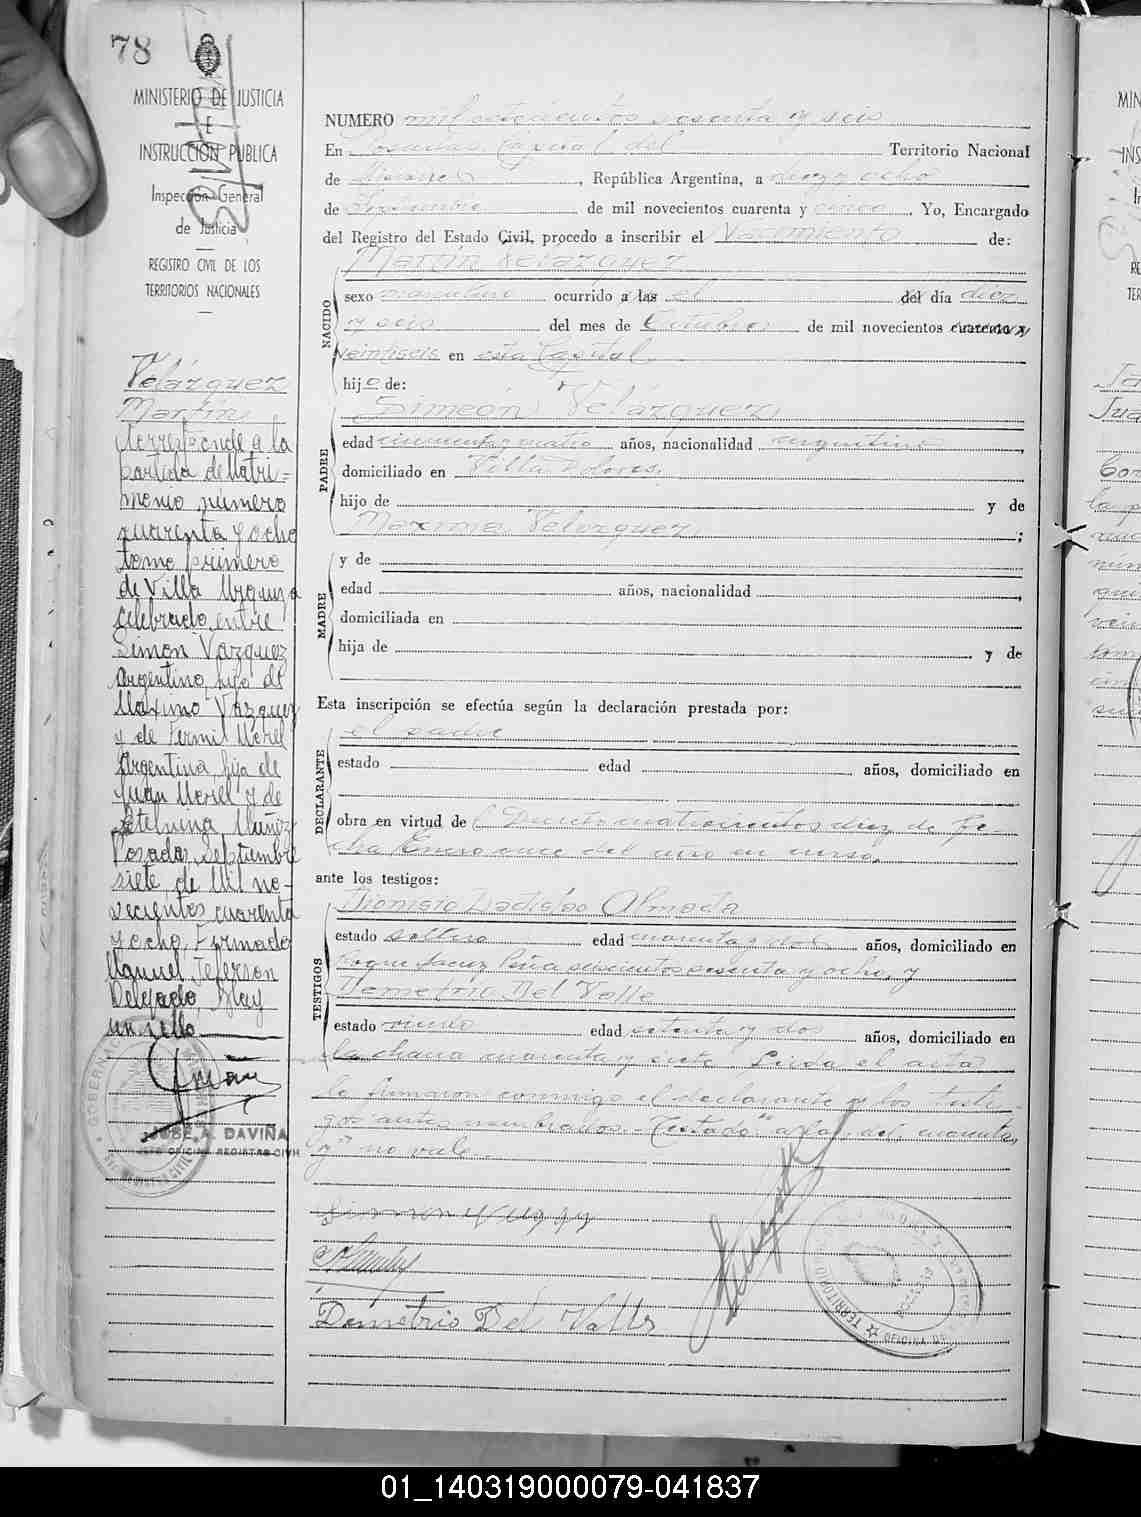 78
MINISTERIO DE JUSTICIA
E
INSTRUCCIÓN PUBLICA
Inspección General
de Justicia
REGISTRO CIVIL DE LOS
TERRITORIOS NACIONALES
Velázquez
Martín
Corresponde a la
partida de Matri=
monio número
cuarenta y ocho
tomo primero
de Villa Urquiza
celebrado entre
Simon Vazquez
Argentino, hijo de
Maximo Vazquez
y de Fermi Morel
Argentina, hija de
Juan Morel y de
Muñoz
Posadas, septiembre
siete de Mil no-
vecientos cuarenta
y ocho, Firmado
Manuel Jeferson
Delgado, Hay
un sello
JOSÉ A. DAVIÑA
JEFE OFICINA REGISTRO CIVIL
NUMERO mil ochocientos sesenta y seis
En Posadas, Capital del Territorio Nacional
de Misiones, República Argentina, a diez y ocho
de Septiembre de mil novecientos cuarenta y cinco. Yo, Encargado
del Registro del Estado Civil, procedo a inscribir el Nacimiento de:
NACIDO
Martín Velázquez
sexo masculino ocurrido a las el del día diez
y seis del mes de Octubre de mil novecientos cuarenta y
veintiseis en esta Capital.
hijo de:
PADRE
Simeón Velázquez
edad cincuenta y cuatro años, nacionalidad argentino
domiciliado en Villa Dolores.
hijo de y de
Maxima Velazquez ;
MADRE
y de
edad años, nacionalidad
domiciliada en
hija de y de
Esta inscripción se efectúa según la declaración prestada por:
DECLARANTE
el padre
estado edad años, domiciliado en
obra en virtud del Decreto cuatrocientos diez de fe-
cha Enero once del año en curso,
ante los testigos:
TESTIGOS
Dionisio Ladislao Almada
estado soltero edad cuarenta y dos años, domiciliado en
Roque Saenz Peña seiscientos sesenta y ocho, y
Demetrio Del Valle
estado viudo edad setenta y dos años, domiciliado en
la chacra cuarenta y siete. Leida el acta
la firmaron conmigo el declarante y los testi-
gos antes nombrados.-Testado "a las, del, cuarenta,
y" no vale.
Demetrio Del Valle
OFICINA DE
01_140319000079-041837